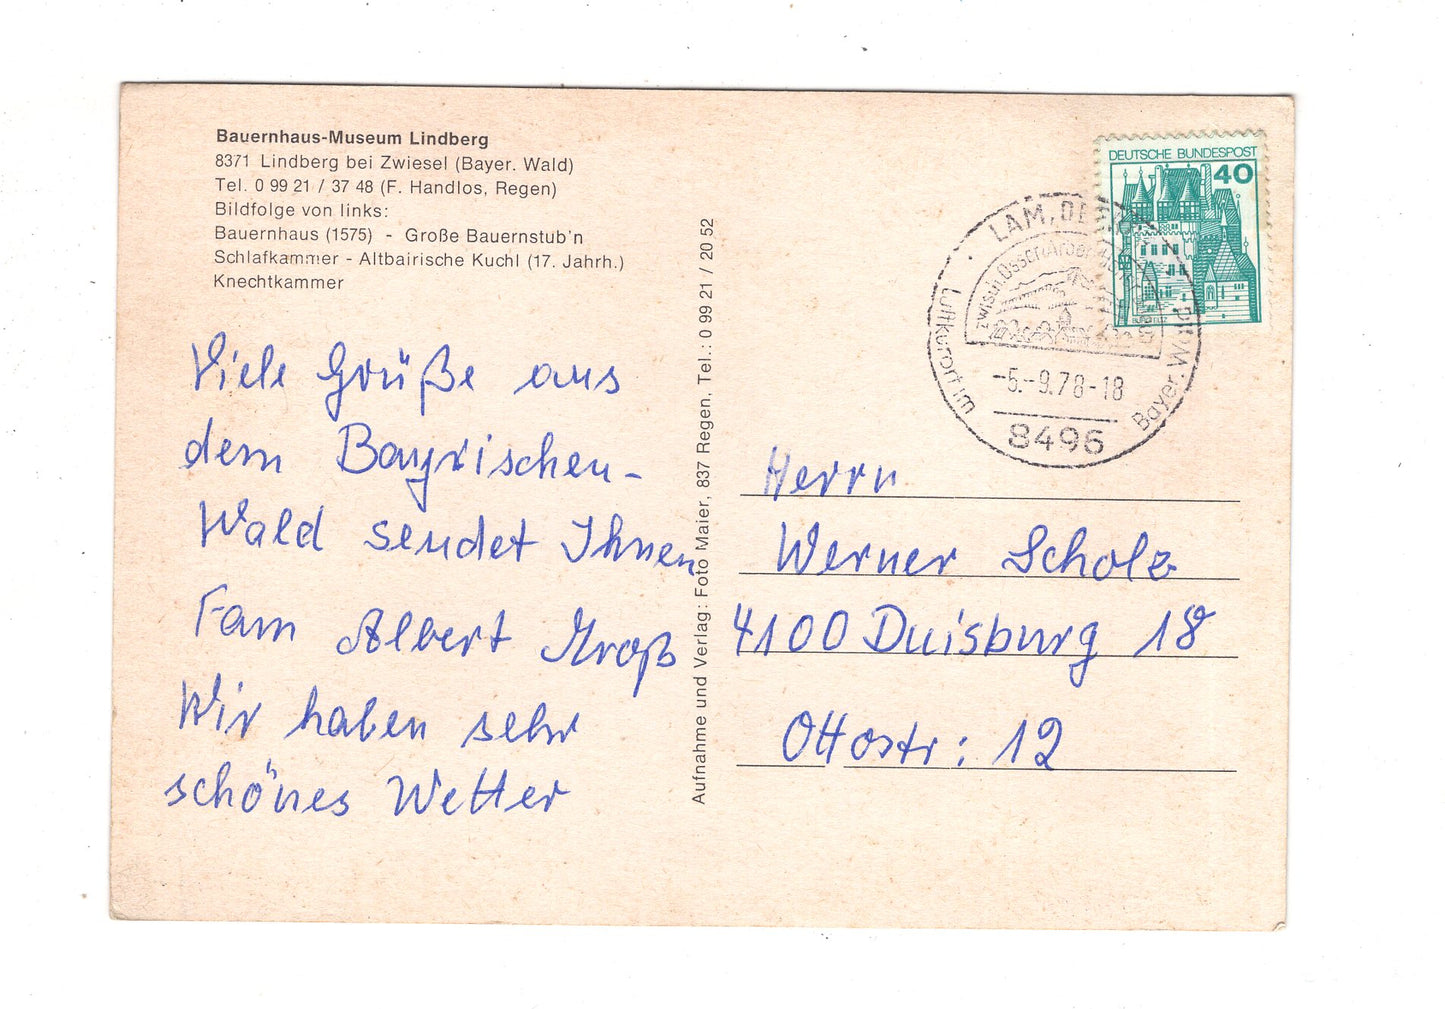 Bauernhaus-Museum Lindberg
8371 Lindberg bei Zwiesel (Bayer. Wald)
Tel. 0 99 21 / 37 48 (F. Handlos, Regen)
Bildfolge von links:
Bauernhaus (1575) - Große Bauernstub'n
Schlafkammer - Altbairische Kuchl (17. Jahrh.)
Knechtkammer
Viele Grüße aus
dem Bayrischen-
Wald sendet Ihnen
Fam Albert Kroß
Wir haben sehr
schönes Wetter
Aufnahme und Verlag: Foto Maier, 837 Regen, Tel.: 0 99 21 / 20 52
DEUTSCHE BUNDESPOST
40
LAM, DER
zwisch. Osser, Arber
Luftkurort im
Bayer. Wald
-5.-9.78-18
8496
Herrn
Werner Scholz
4100 Duisburg 18
Ottostr: 12